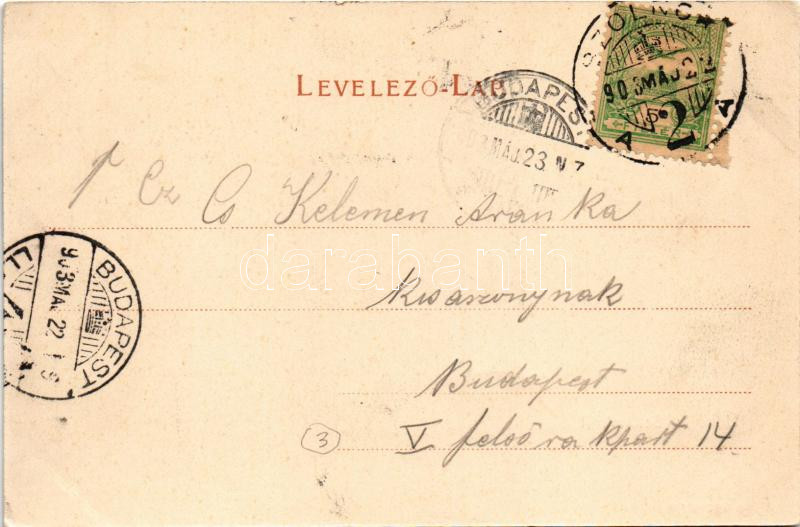 SZOLNOK
903 MÁJ 22
A 2 A
5
LEVELEZŐ-LAP
BUDAPEST
903 MÁJ. 23. N 7
Cz Cs Kelemen Aranka
kisasszonynak
BUDAPEST
903 MÁJ 22
Budapest
V felső rakpart 14
3
darabanth